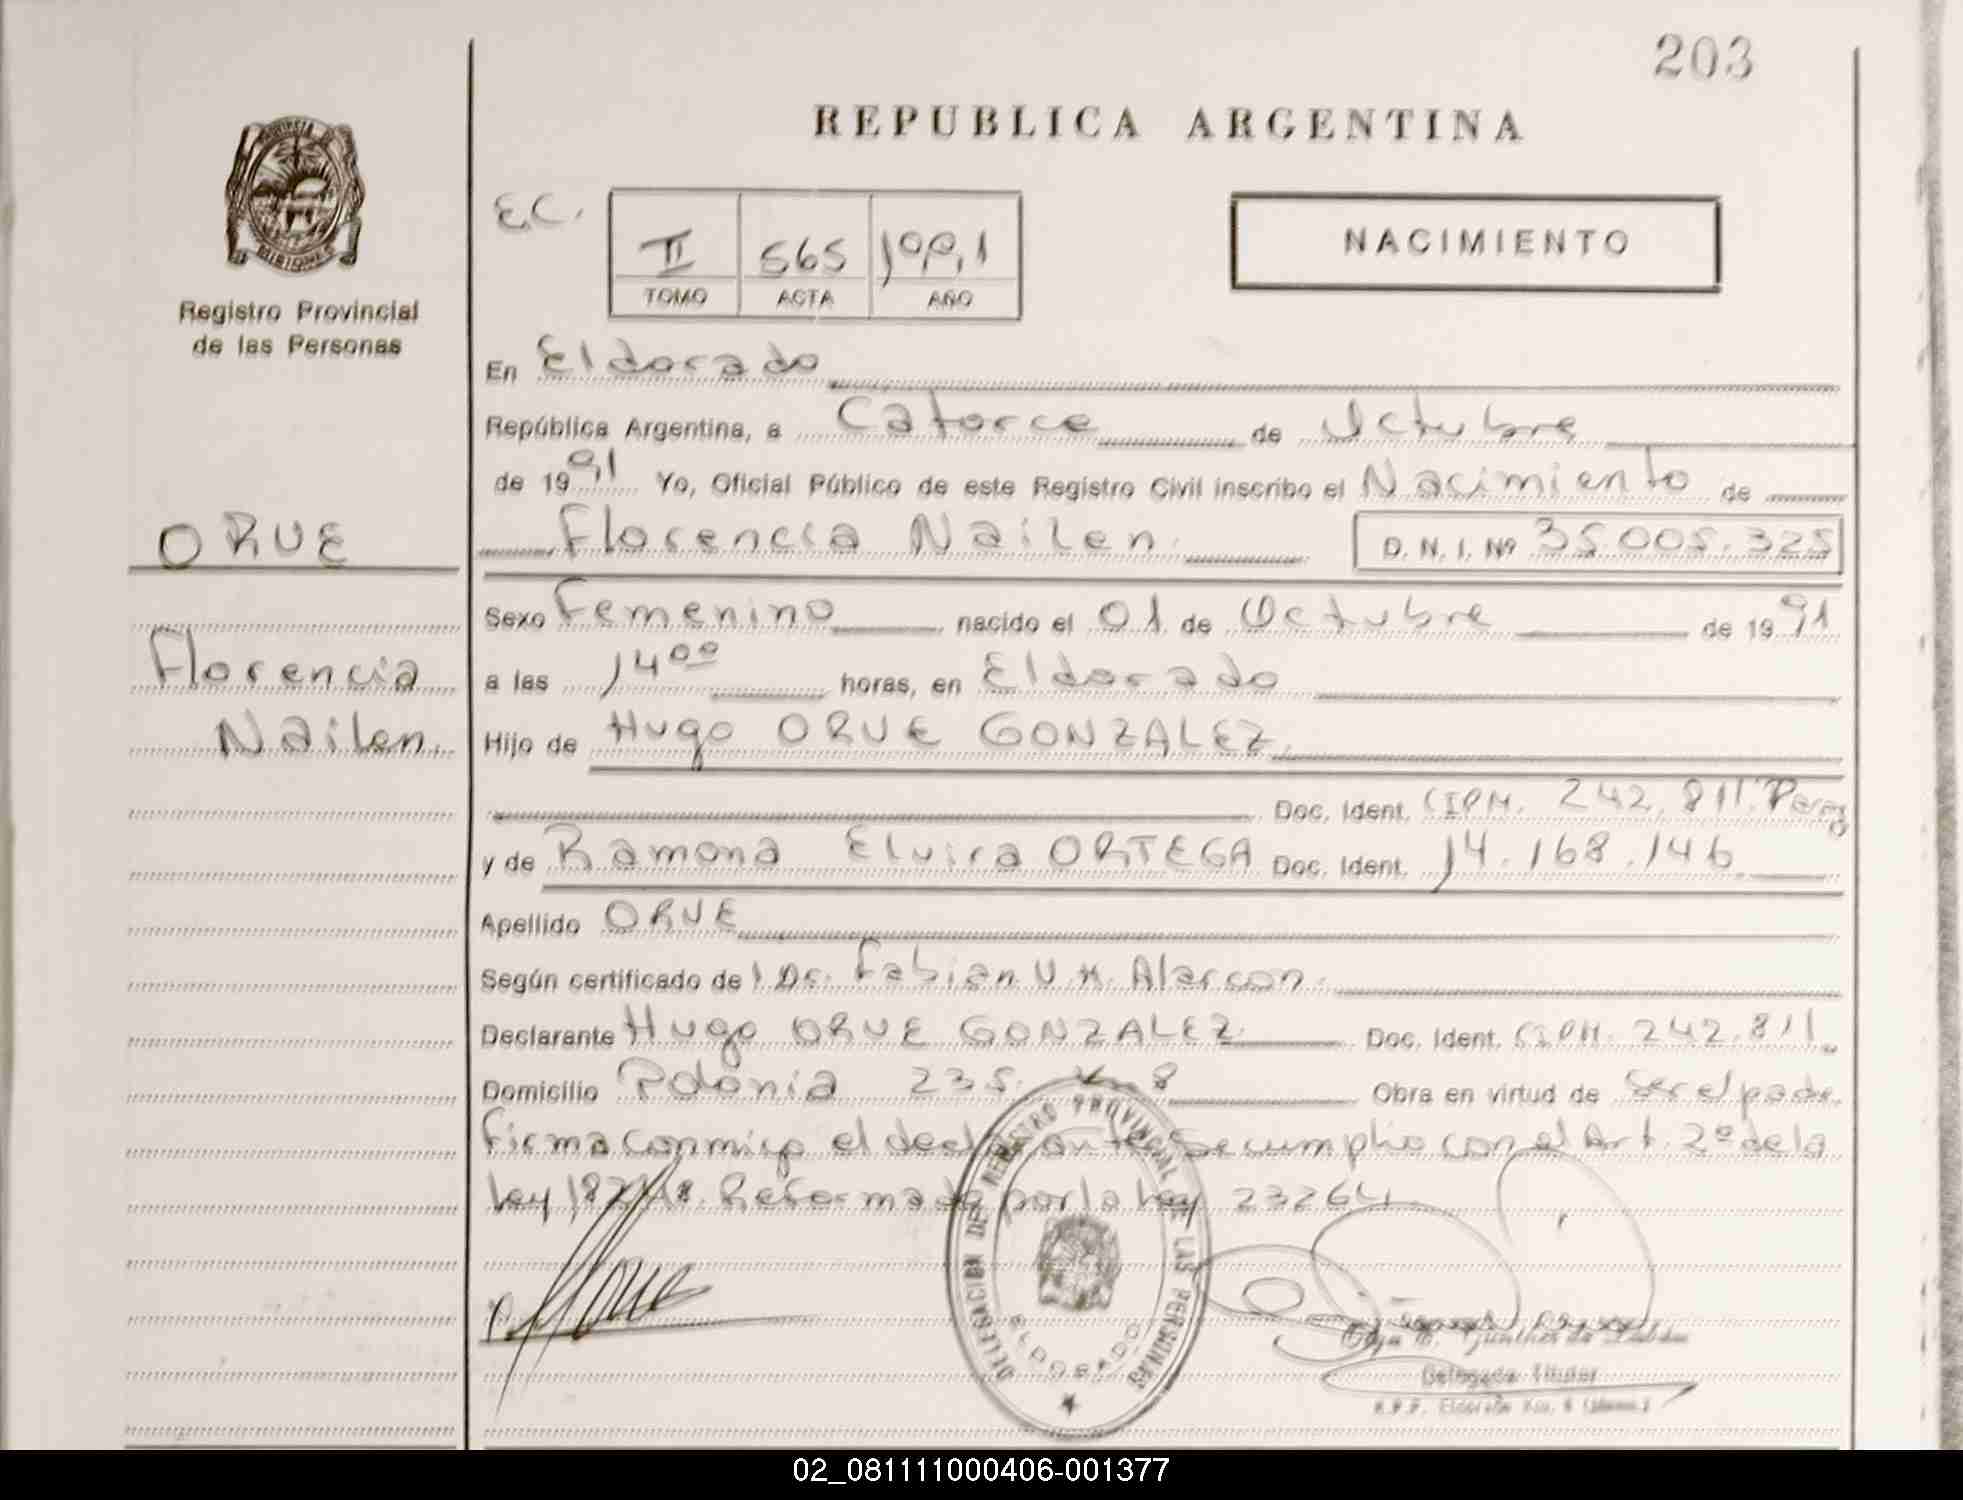 203
REPUBLICA ARGENTINA
PROVINCIA
MISIONES
Registro Provincial
de las Personas
E.C.
II 565 1991
TOMO ACTA AÑO
NACIMIENTO
En Eldorado
República Argentina, a Catorce de Octubre
de 1991 Yo, Oficial Público de este Registro Civil inscribo el Nacimiento de
ORUE
Florencia Nailen D. N. I. Nº 35.005.325
Sexo Femenino nacido el 01 de Octubre de 1991
Florencia
a las 14 00 horas, en Eldorado
Nailen.
Hijo de Hugo ORUE GONZALEZ
Doc. Ident. CIPM. 242.811.
y de Ramona Elvira ORTEGA Doc. Ident. 14.168.146
Apellido ORUE
Según certificado de l Dr. Fabian V. H. Alarcon.
Declarante Hugo ORUE GONZALEZ Doc. Ident. CIPM. 242.811.
Domicilio Polonia 235. K. 8 Obra en virtud de ser el padre
firma conmigo el declarante Se cumplio con el Art. 2º de la
Ley 18248. Reformada por la Ley 23264.
DELEGACION DEL REGISTRO PROVINCIAL DE LAS PERSONAS
ELDORADO
Orue
Delegada Titular
R.P.P. Eldorado Km. 8
02_081111000406-001377